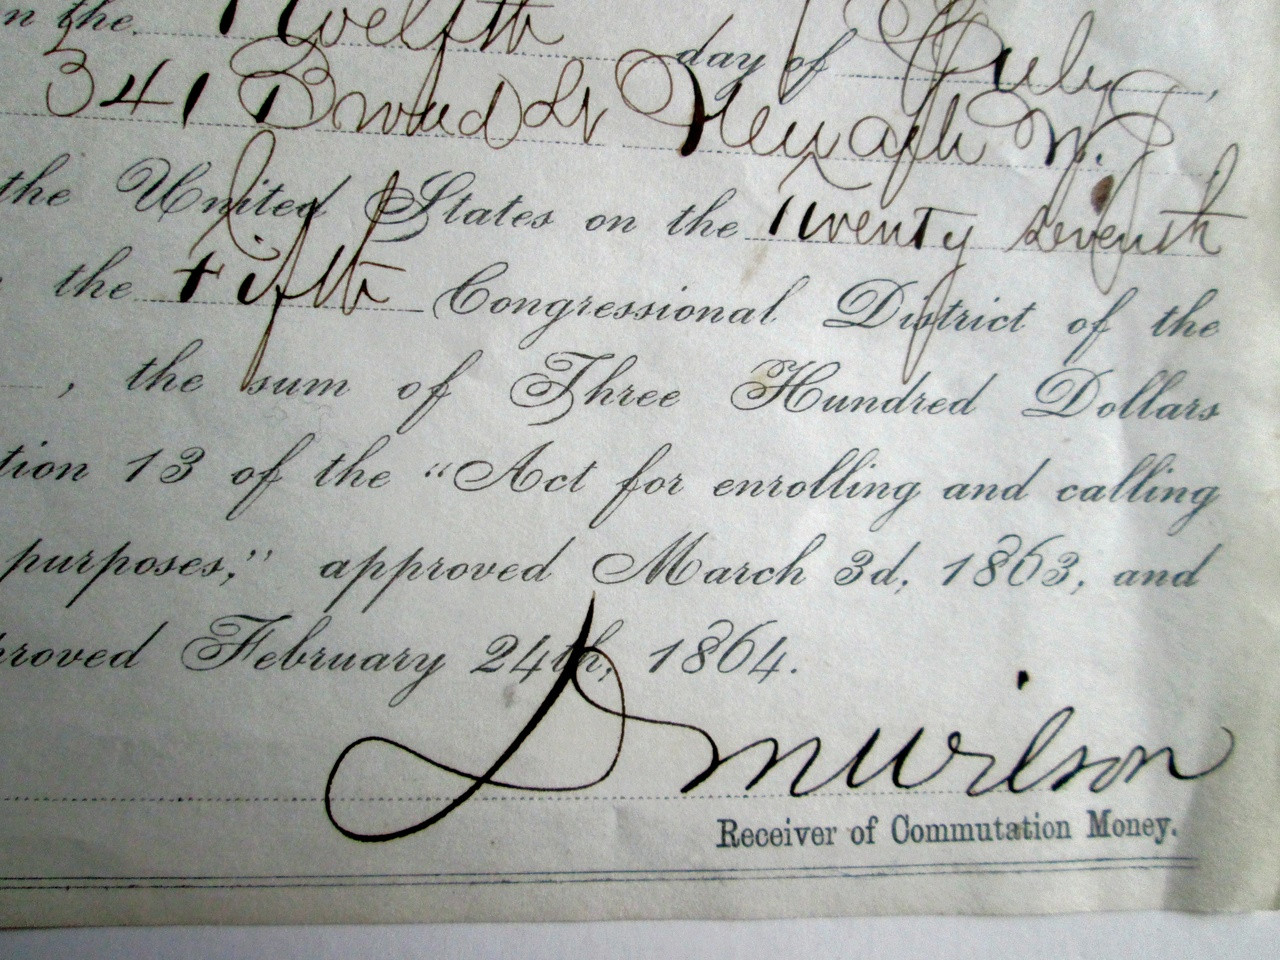 n the Twelfth day of July,
341 Broad St Newark N. J
the United States on the Twenty seventh
the Fifth Congressional District of the
, the sum of Three Hundred Dollars
tion 13 of the "Act for enrolling and calling
purposes," approved March 3d, 1863, and
proved February 24th, 1864.
D M Wilson
Receiver of Commutation Money.